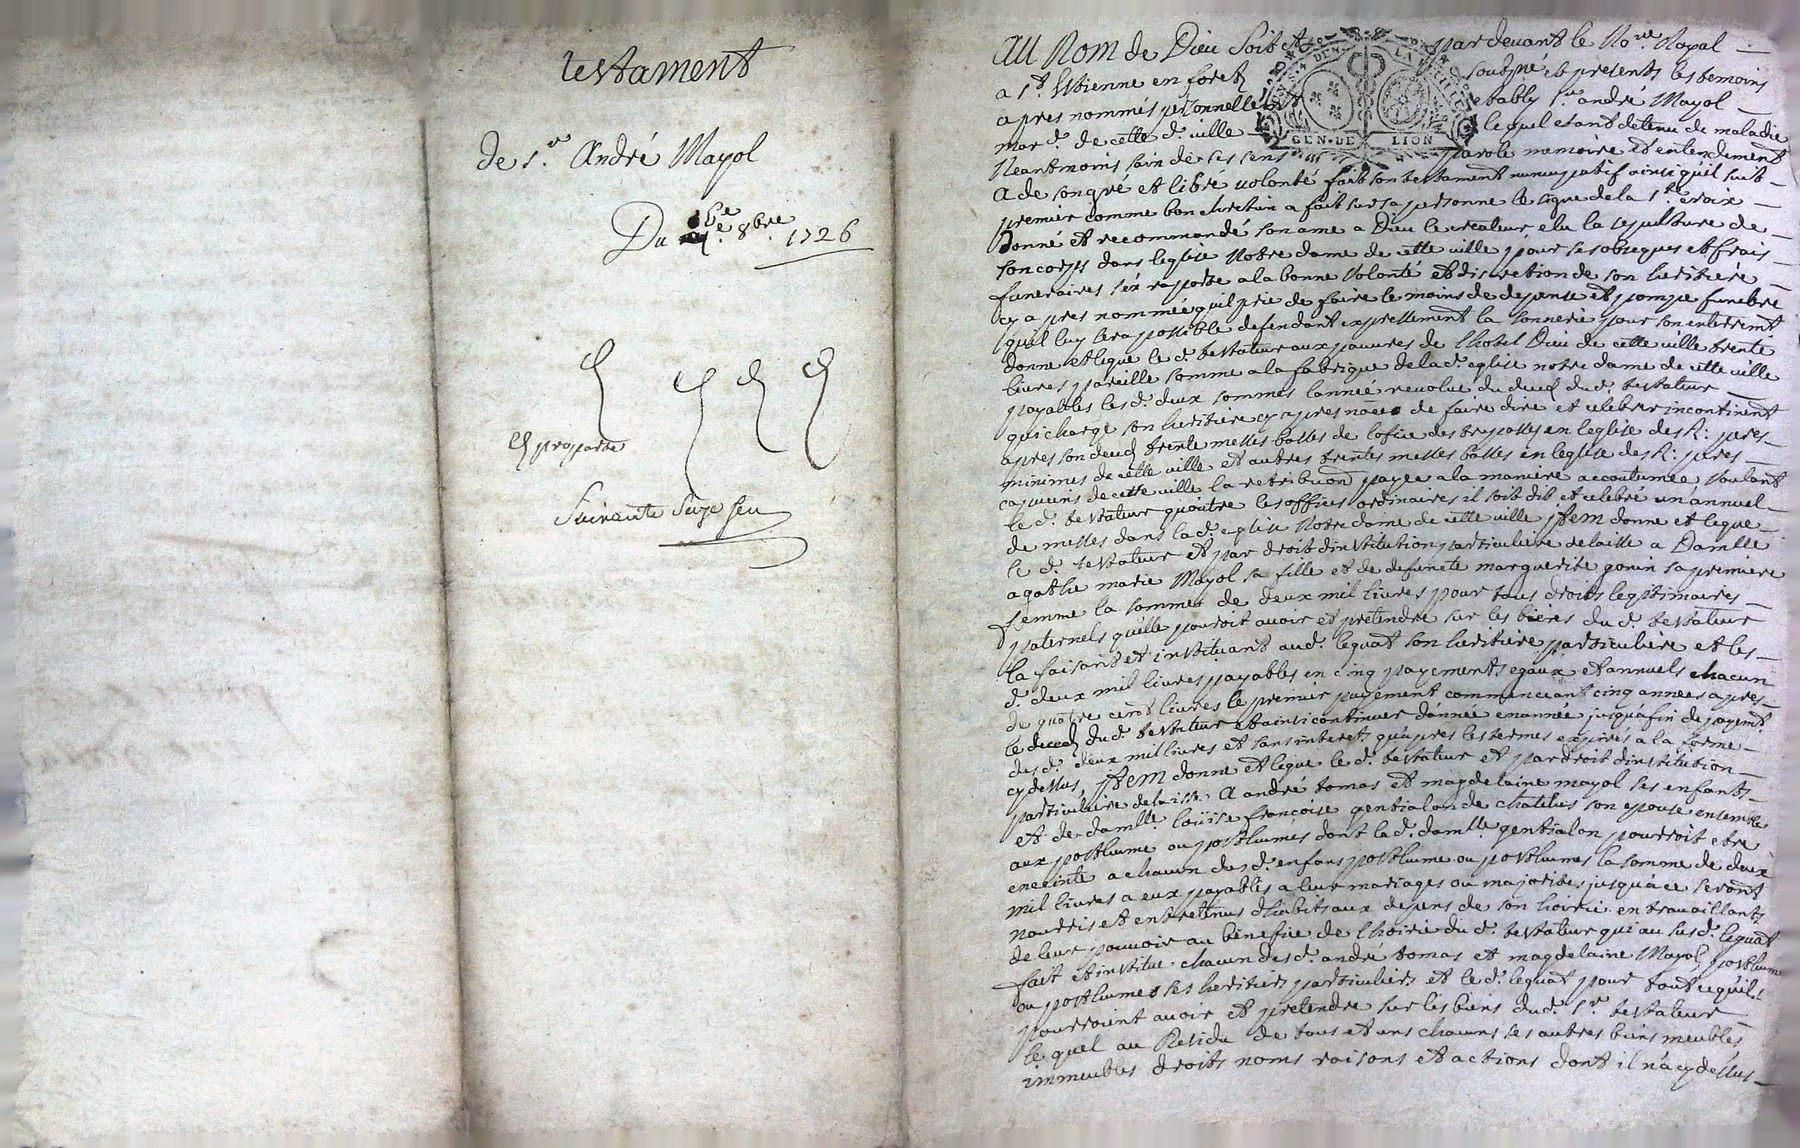 testament
de s.r André Mayol
Du 16e 8bre. 1726
Expropartie
Suivante Suze feu
au Nom de Dieu Soit par devant le No.re Royal
a s.t Estienne en forest soubsné et presents les temoins
apres nommés personnellem.t estably s.r andré Mayol
mar.d de cette d. ville lequel estant detenu de maladie
Neantmoins sain de ses sens parole memoire et entendement
A de son gré et libre volonté fait son testament nuncupatif ainsi quil suit
premier comme bon chretien a fait sur sa personne le signe de la s.te croix
donné et recommandé son ame a Dieu le createur elu la sepulture de
son corps dans leglise Notre dame de cette ville pour ses obseques et frais
funeraires s'en raporte a la bonne volonté et discretion de son heritiere
cy apres nommée quil prie de faire le moins de depense et pompe funebre
quil luy sera possible defendant expressement la sonnerie pour son enterremt
donne et legue le d. testateur aux pauvres de lhotel Dieu de cette ville trente
livres pareille somme a la fabrique de la d. eglise notre dame de cette ville
payables les d. deux sommes lannée revolue du deces du d. testateur
qui charge son heritiere cy apres nomée de faire dire et celebrer incontinent
apres son deces trente messes basses de lofice des trepassés en leglise des R: peres
minimes de cette ville et autres trentes messes basses en leglise des R: peres
capucins de cette ville la retribuon payée a la maniere accoutumée voulant
le d. testateur quoutre les offices ordinaires il soit dit et celebré un annuel
de messes dans la d. eglise Notre dame de cette ville jtem donne et legue
le d. testateur et par droit dinstitution particuliere delaisse a Damlle
agathe marie Mayol sa fille et de defuncte marguerite gonin sa premiere
femme la somme de deux mil livres pour tous droits legitimaires
paternels quelle pouroit avoir et pretendre sur les biens du d. testateur
la faisant et instituant au d. lequat son heritiere particuliere et les
d. deux mil livres payables en cinq payements egaux et annuels chacun
de quatre cents livres le premier payement commenceant cinq années apres
le deceds du d. testateur et ainsi continuer dannée en année jusqua fin de payemt
des d. deux mil livres et sans interet quapres les termes expirés a la forme
cy dessus, jtem donne et legue le d. testateur et par droit dinstitution
particuliere delaisse A andré tomas et magdelaine mayol ses enfants
et de damlle. loüise françoise gentialon de chatelus son epouse ensemble
aux posthume ou posthumes dont la d. damlle gentialon pourroit etre
enceinte a chacun des d. enfans posthume ou posthumes la somme de deux
mil livres a eux payables a leur mariages ou majorités jusqua ce seront
nourris et entretenus dhabits aux depens de son hoirie en travaillants
de leur pouvoir au benefice de lhoirie du d. testateur qui au sus d. lequat
fait et institue chacun des d. andré tomas et magdelaine Mayol, posthume
ou posthumes ses heritiers particuliers et le d. lequat pour tout cequils
pourroient avoir et pretendre sur les biens du d. s.r testateur
le quel au Residu de tous et uns chacuns ses autres biens meubles
immeubles droits noms raisons et actions dont il n'a cy dessus
GEN·DE LION